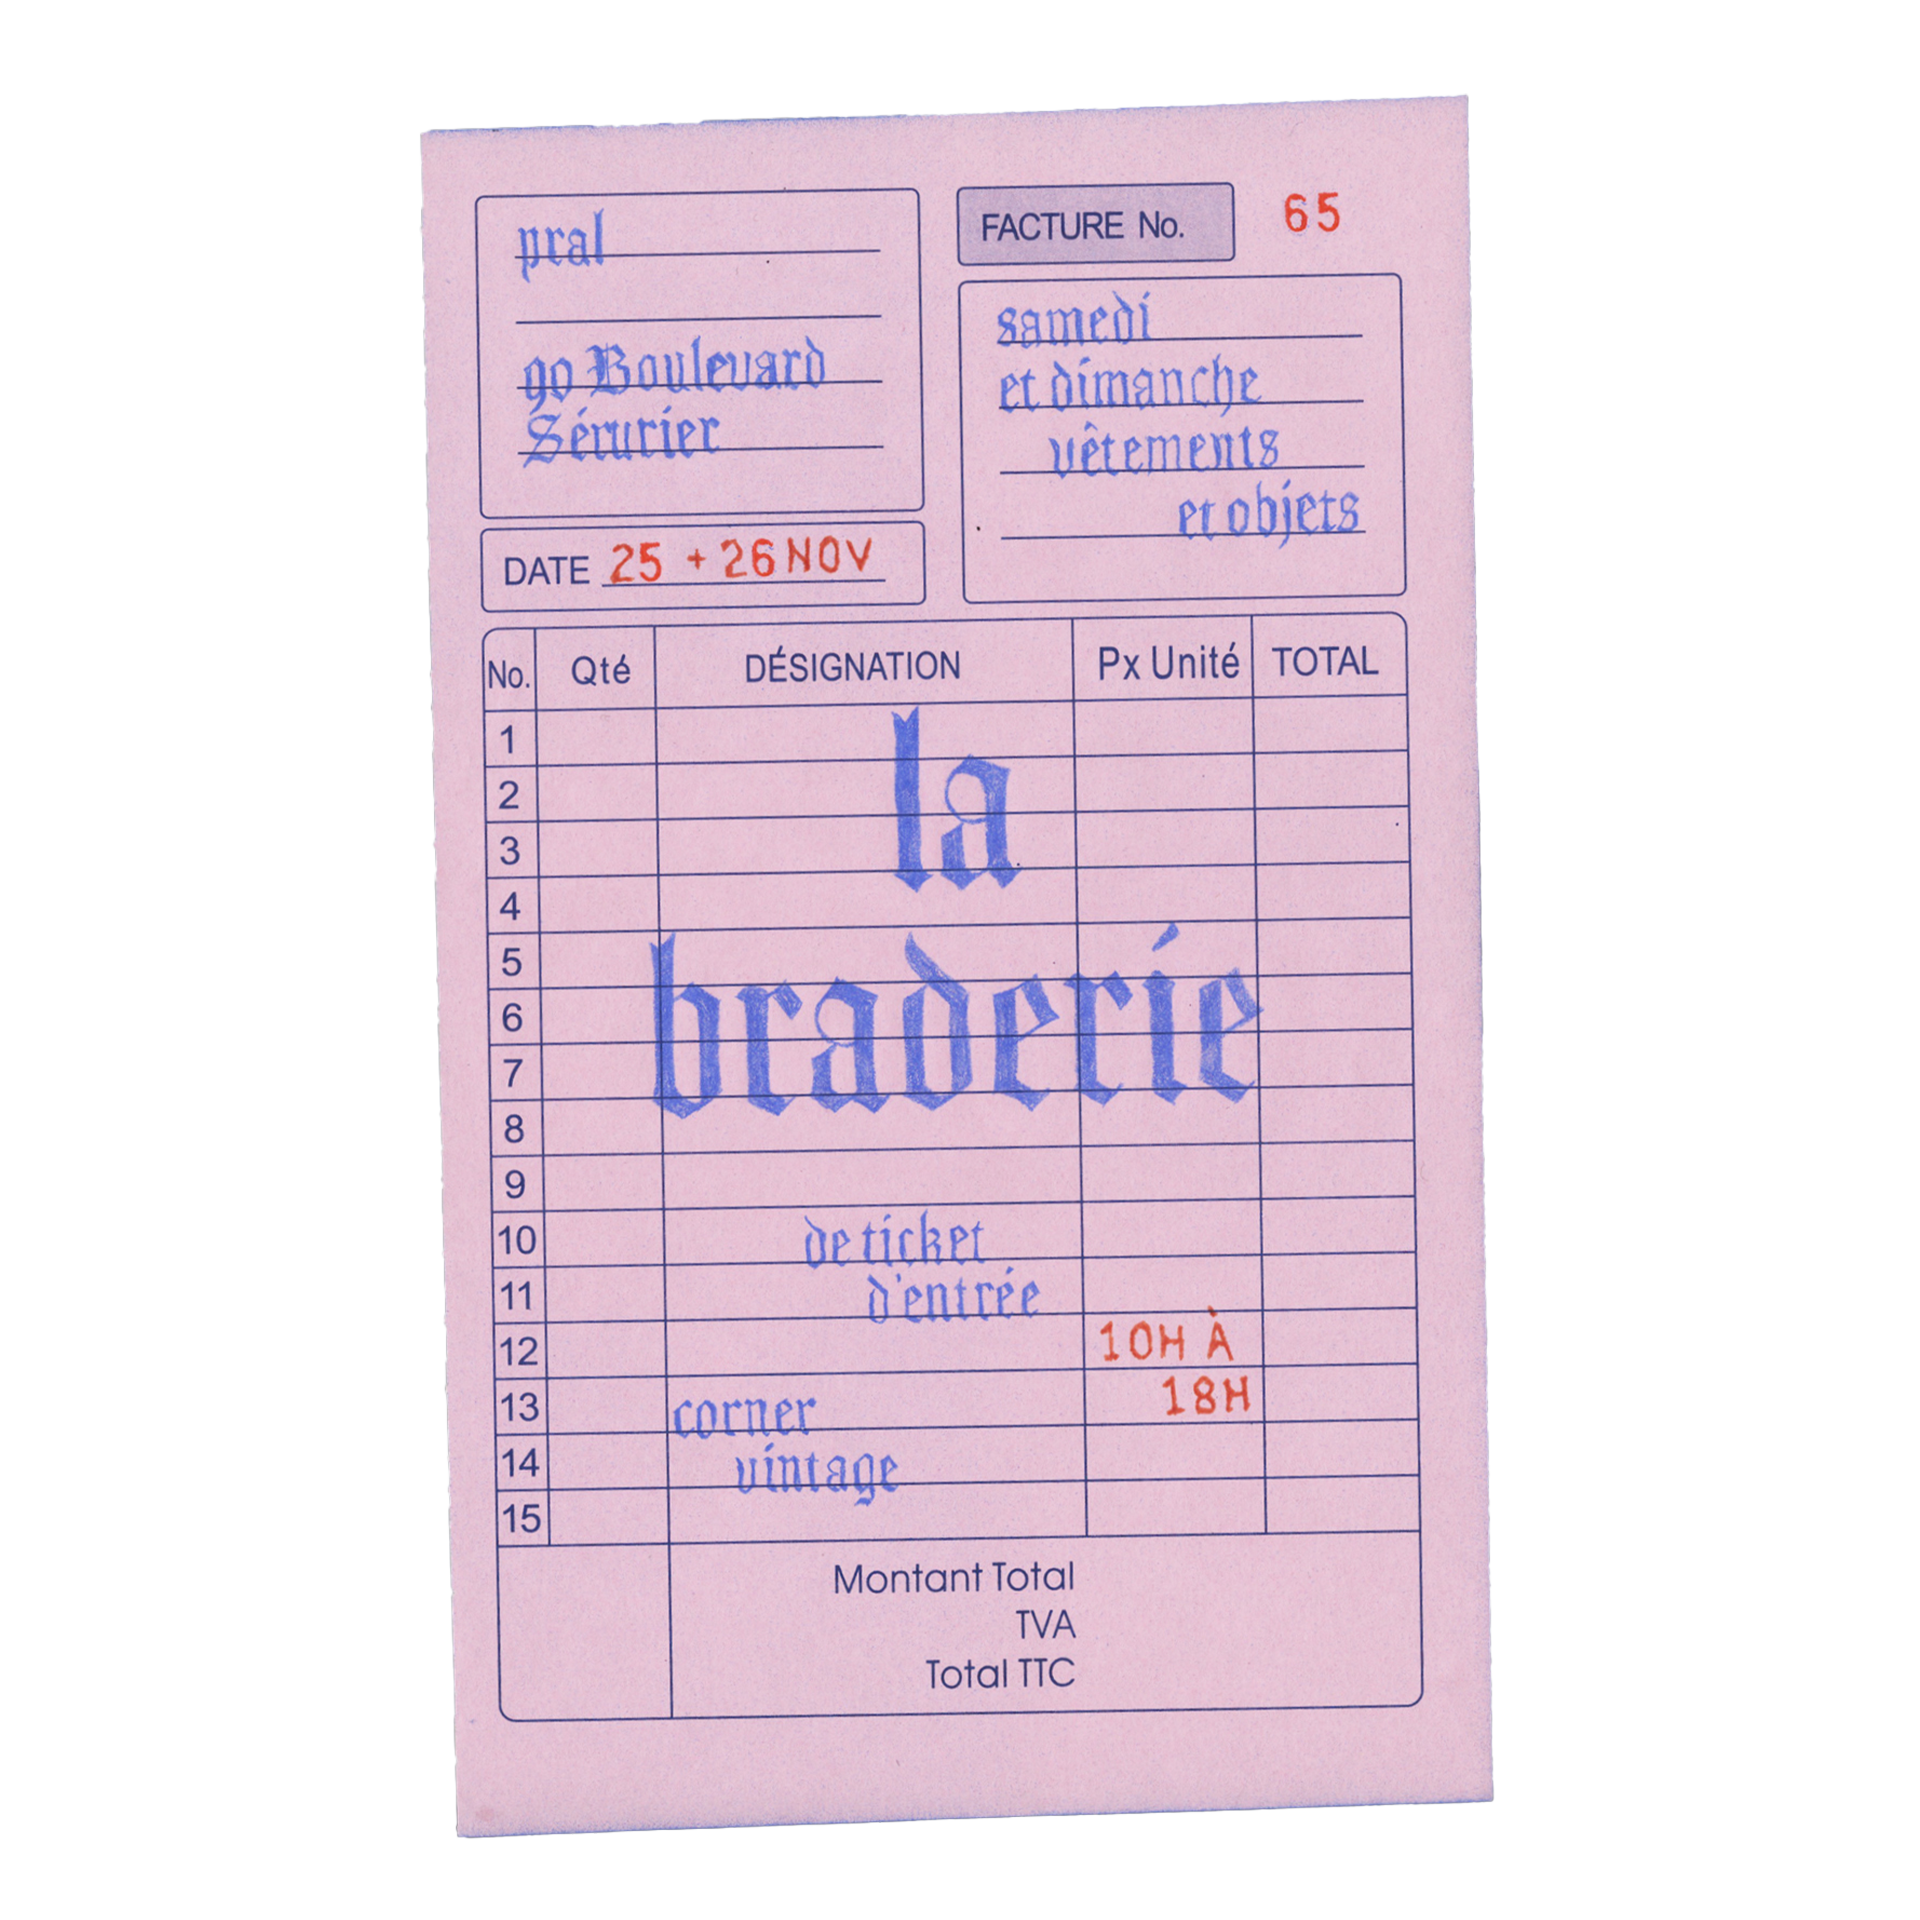 pral
90 Boulevard
Sérurier
FACTURE No. 65
samedi
et dimanche
vêtements
et objets
DATE 25 + 26 NOV
No. Qté DÉSIGNATION Px Unité TOTAL
1
2
3
4
la
5
6
7
8
braderie
9
10 de ticket
11 d'entrée
12 10H À
13 corner 18H
14 vintage
15
Montant Total
TVA
Total TTC